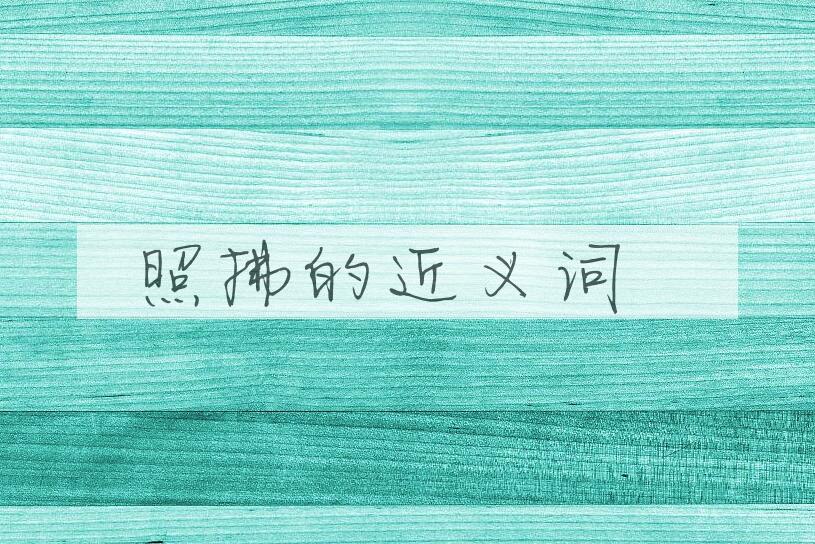 照拂的近义词